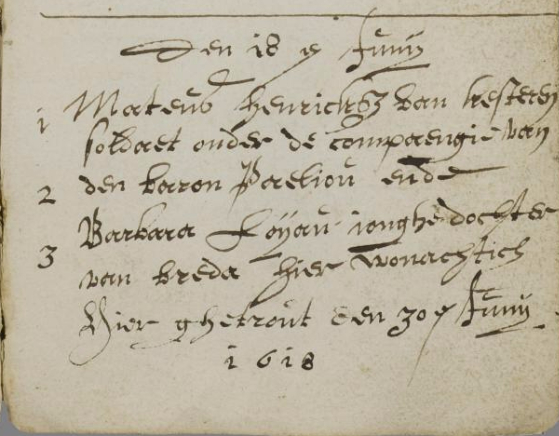 Den 18 e Junij
1 Mateus henricksz van kesteren
soldaet onder de Compaengie van
2 den barron ende
3 Barbara Loyau jonghedochter
van breda hier wonachtich
Hier ghetrout den 30 e Junij
1618